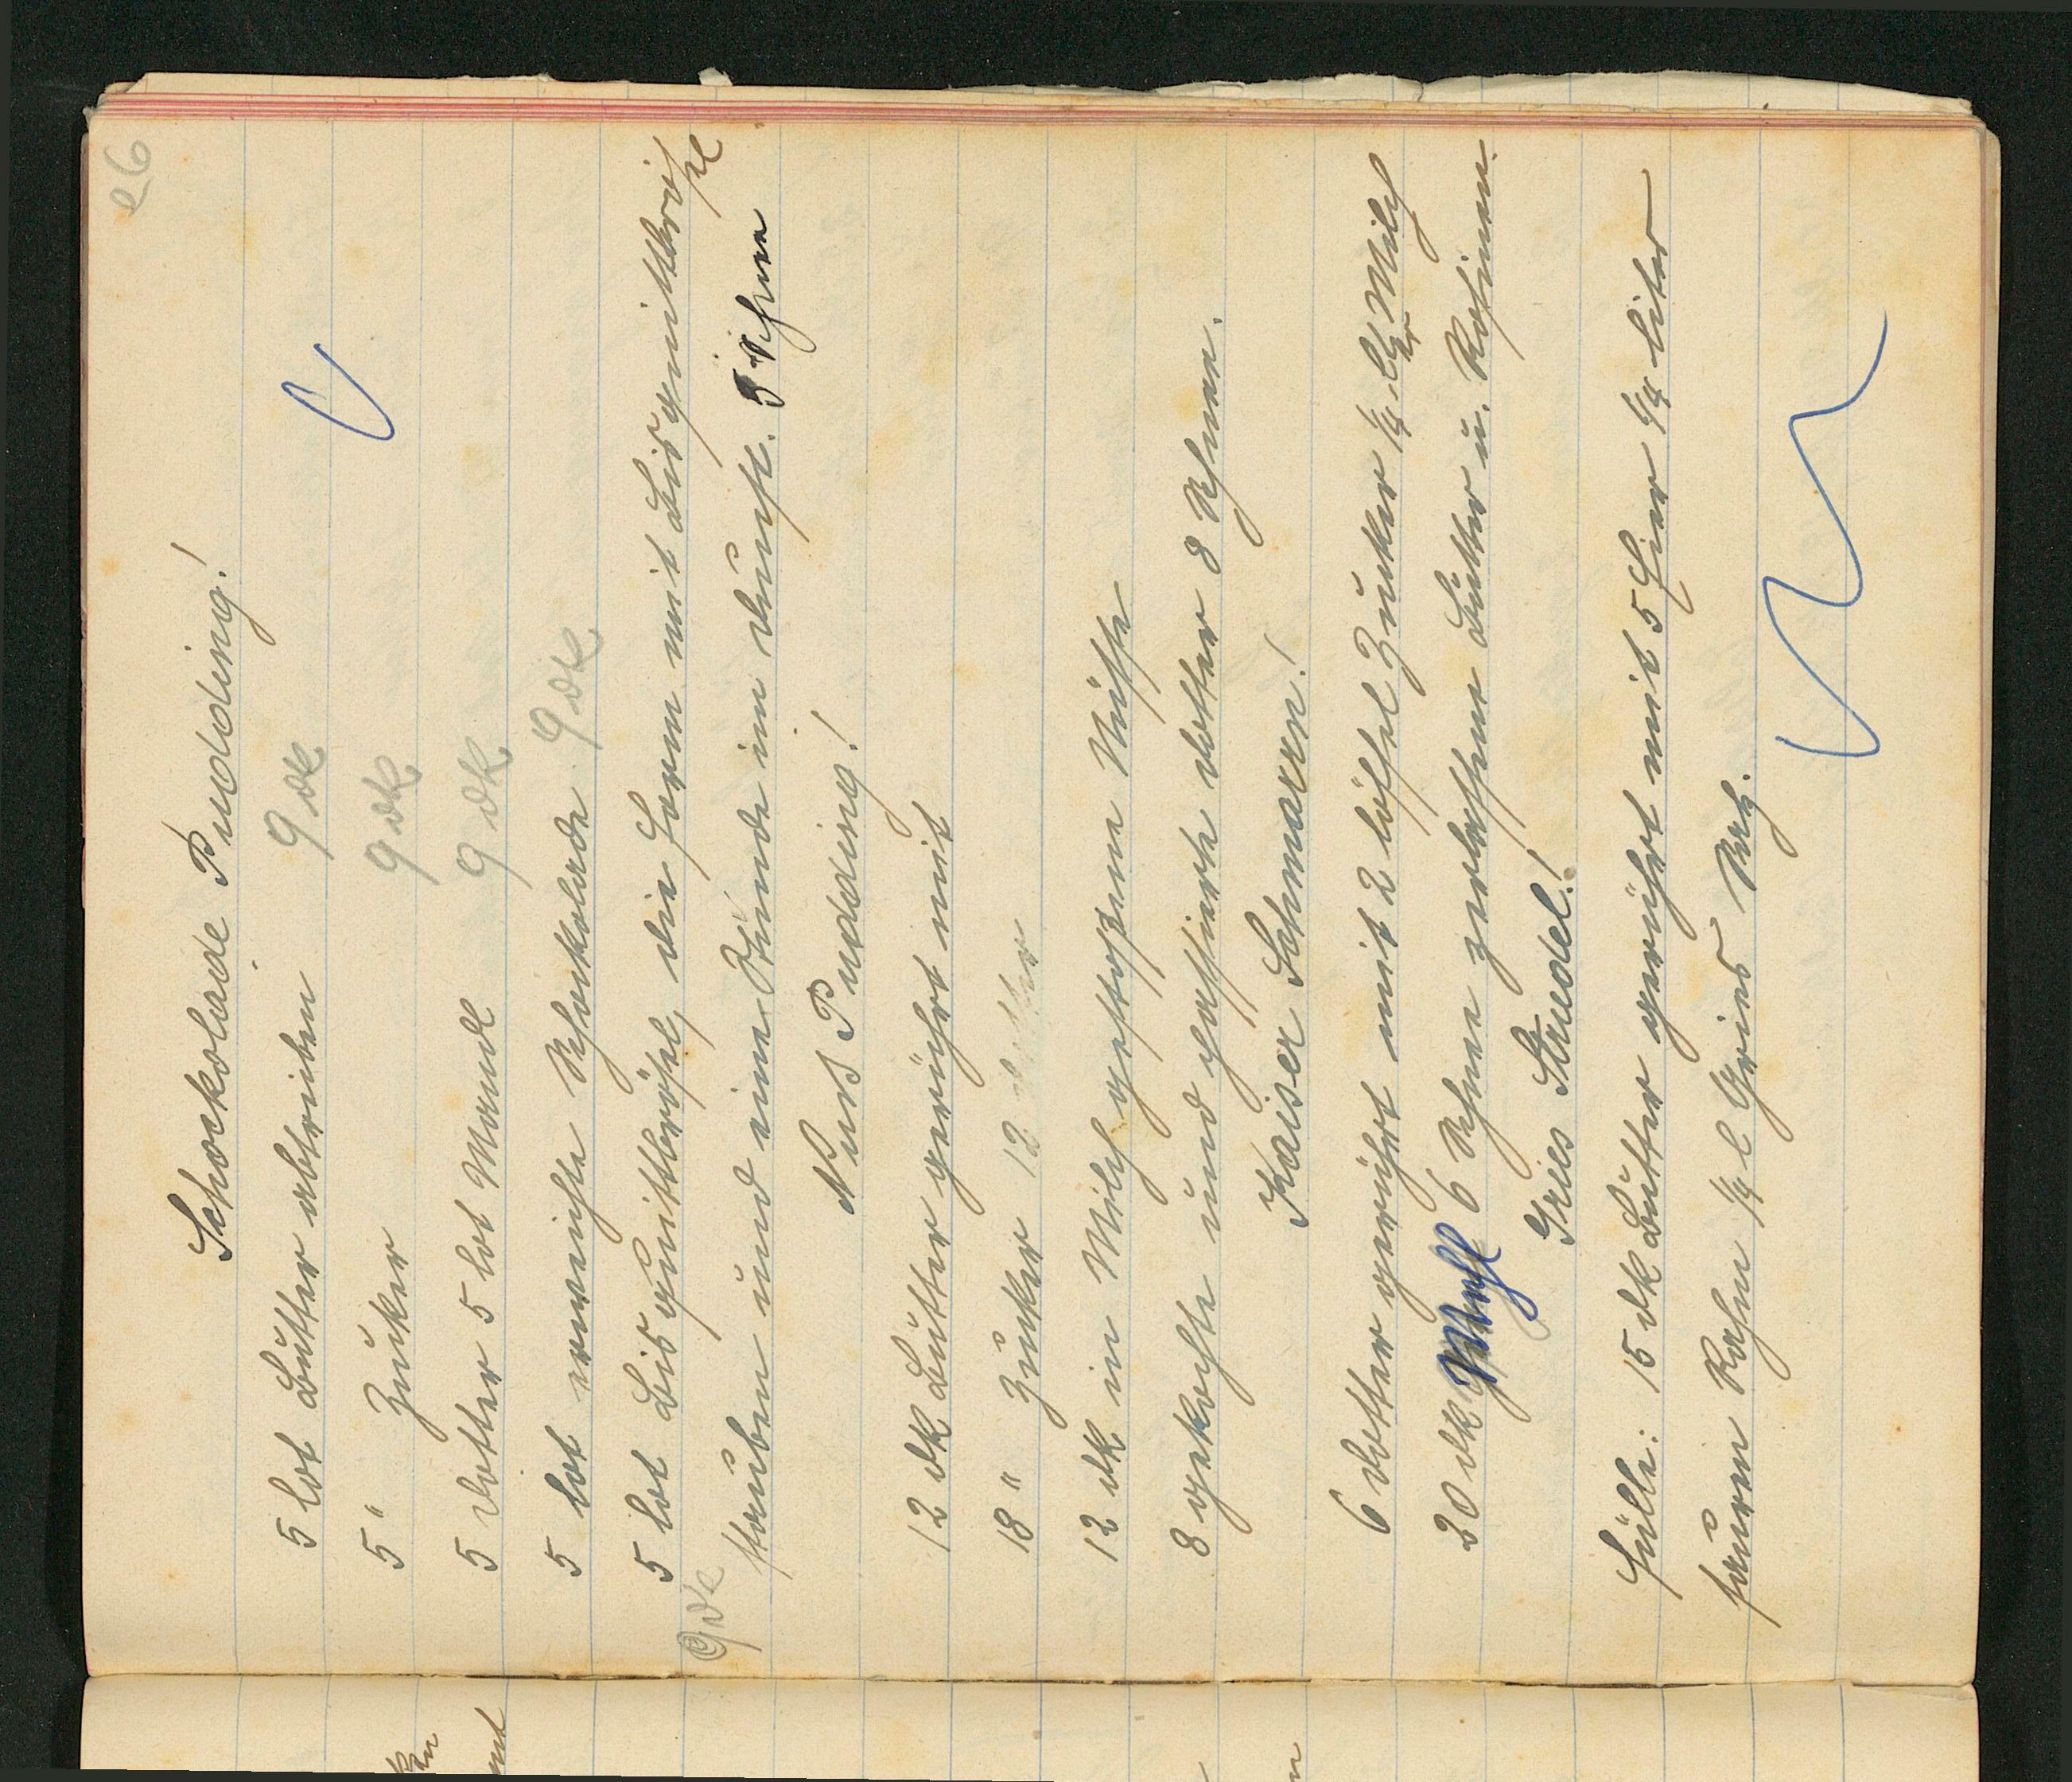 26
Schockolade Pudding!
5 lot Butter abtreiben 9 dk
5 " Zuker 9 dk
5 Dotter 5 lot Mandl 9 dk
5 lot erweichte Schockolade 9 dk
5 lot Bisquittbrösel, die Form mit Bisquittbrösel
9 dk stauben und eine Stunde im Dunst. 5 Schnee
Nuss Pudding!
12 dk Butter gerührt mit
18 " Zuker 12 dotter
12 dk in Milch gestossene Nüsse
8 gekochte und passierte dotter 8 Schnee.
Kaiser Schmarrn!
6 Dotter gerührt mit 2 löffel Zuker ¼ ltr Milch
20 dk Mehl 6 Schnee zerlassene Butter u. Rosinen.
Gries Strudel!
Fülle: 15 dk Butter gerührt mit 5 Eier ¼ liter
sauren Rahm ¼ l Gries